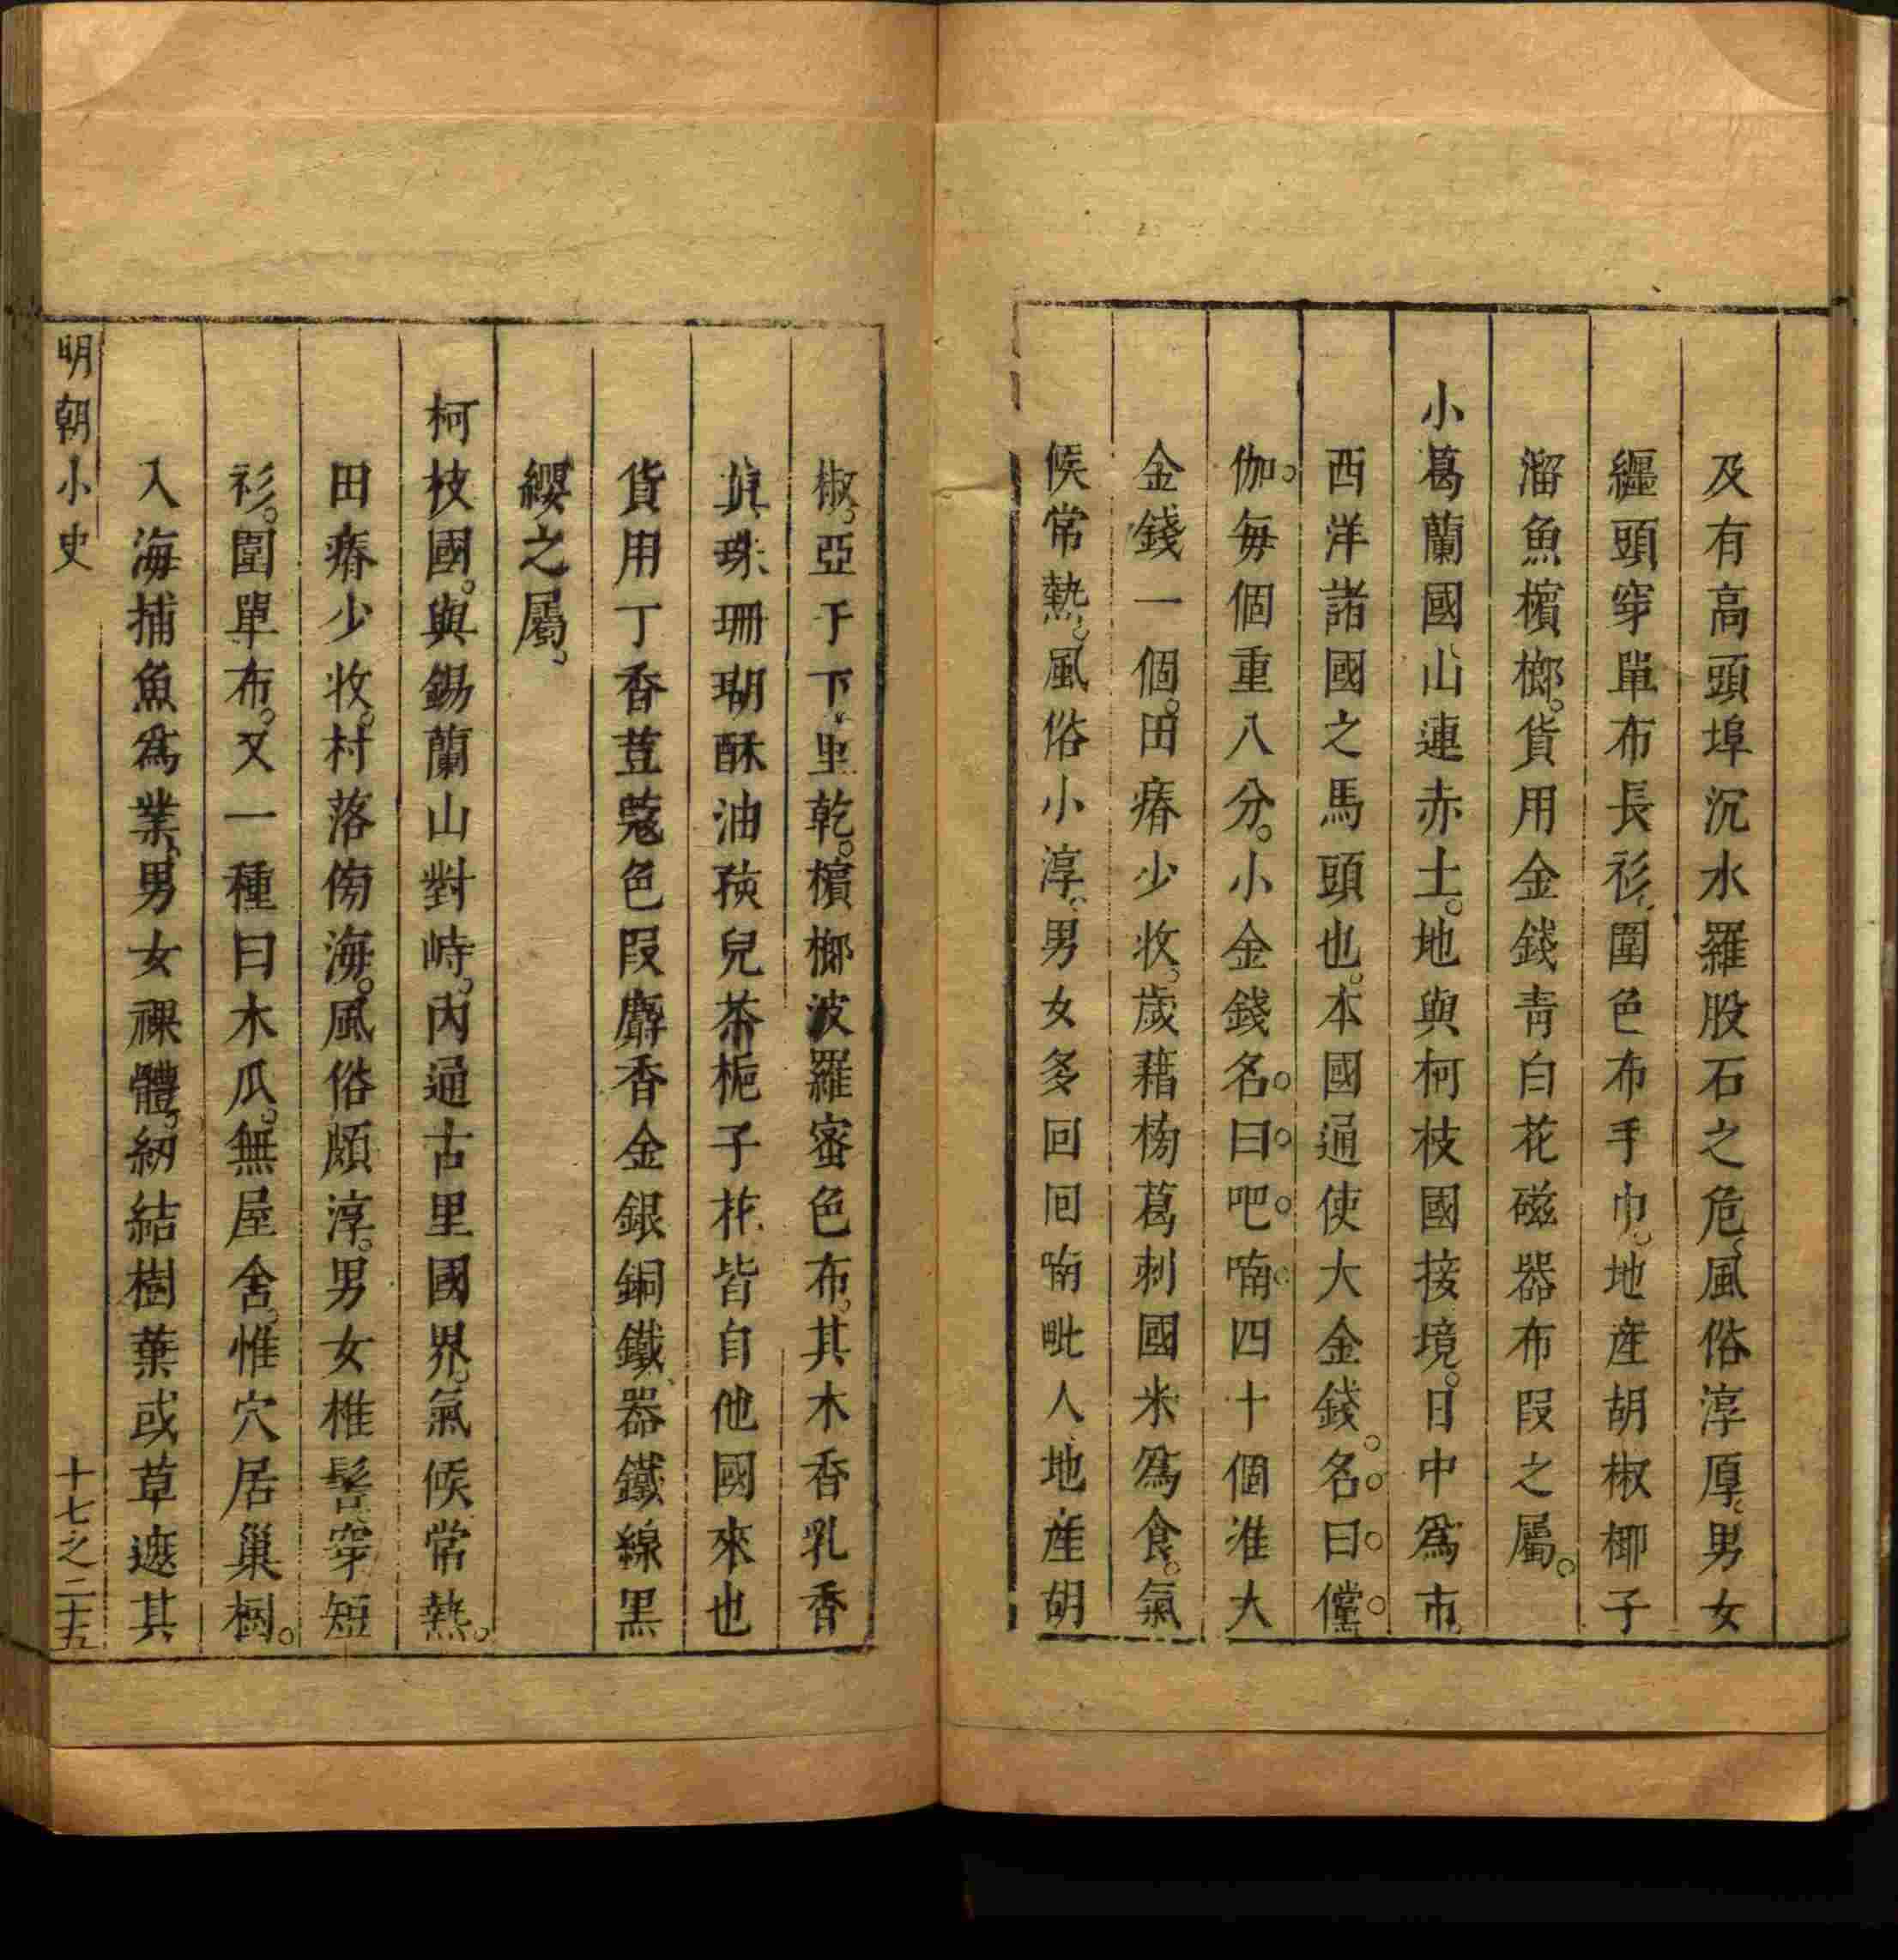 及有高頭埠沉水羅股石之危風俗淳厚。男女
纏頭穿單布長衫圍色布手巾。地産胡椒椰子
溜魚檳榔。貨用金錢靑白花磁器布叚之屬。
小葛蘭國山連赤土。地與柯枝國接境。日中爲市
西洋諸國之馬頭也。本國通使大金錢。名曰儻
伽。每個重八分。小金錢名曰吧喃四十個准大
金錢一個。田瘠少收。歲藉榜葛刺國米爲食。氣
候常熱。風俗小淳。男女多回回喃毗人地産胡
椒。亞于下里乾。檳榔波羅蜜色布。其木香乳香
眞珠珊瑚酥油孩兒茶梔子花皆自他國來也
貨用丁香荳蔻色叚麝香金銀銅鐵器鐵線黑
纓之屬。
柯枝國。與錫蘭山對峙。內通古里國界。氣候常熱。
田瘠少收。村落傍海。風俗頗淳。男女椎髻穿短
衫。圍單布。又一種曰木瓜。無屋舍。惟穴居巢樹。
入海捕魚爲業。男女祼體。紉結樹葉或草遮其
明朝小史
十七之二十五